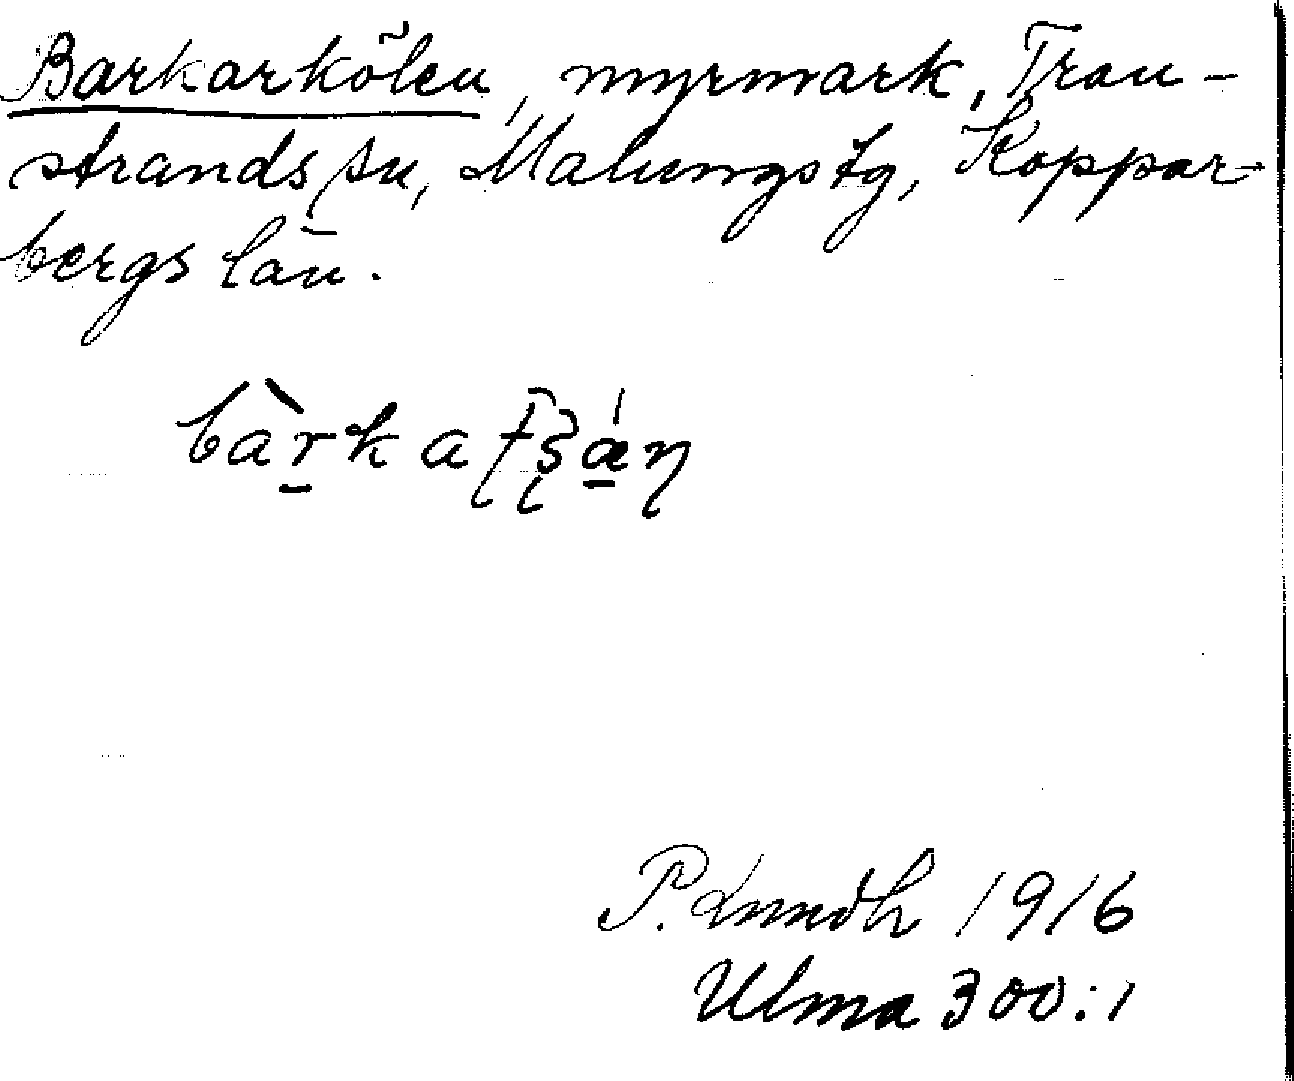 Barkarkölen, myrmark, Tran-
strands sn, Malungs tg, Koppar-
bergs län.
P. Lundh 1916
Ulma 300:1